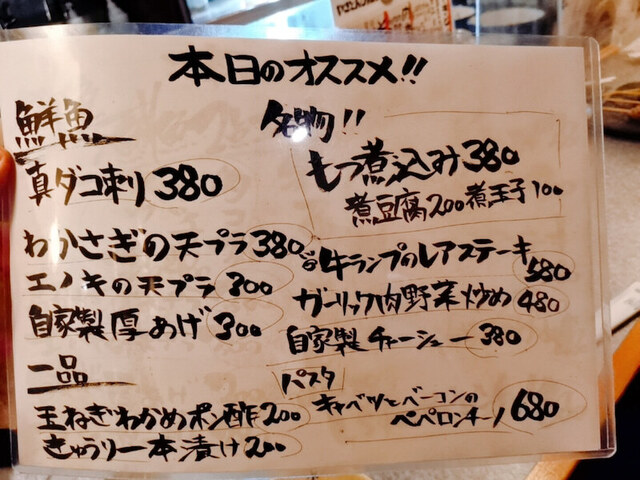 本日のオススメ!!
鮮魚
真ダコ刺り 380
わかさぎの天プラ 380
エノキの天プラ 300
自家製厚あげ 300
一品
玉ねぎわかめポン酢 200
きゅうり一本漬け 200
名物!!
もつ煮込み 380
煮豆腐 200 煮玉子 100
牛ランプのレアステーキ
580
ガーリック肉野菜炒め 480
自家製チャーシュー 380
パスタ
キャベツとベーコンの
ペペロンチーノ 680